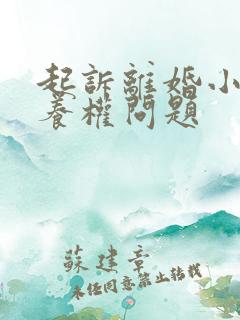 起訴離婚小
養權問題
蘇建章
未经同意禁止转载